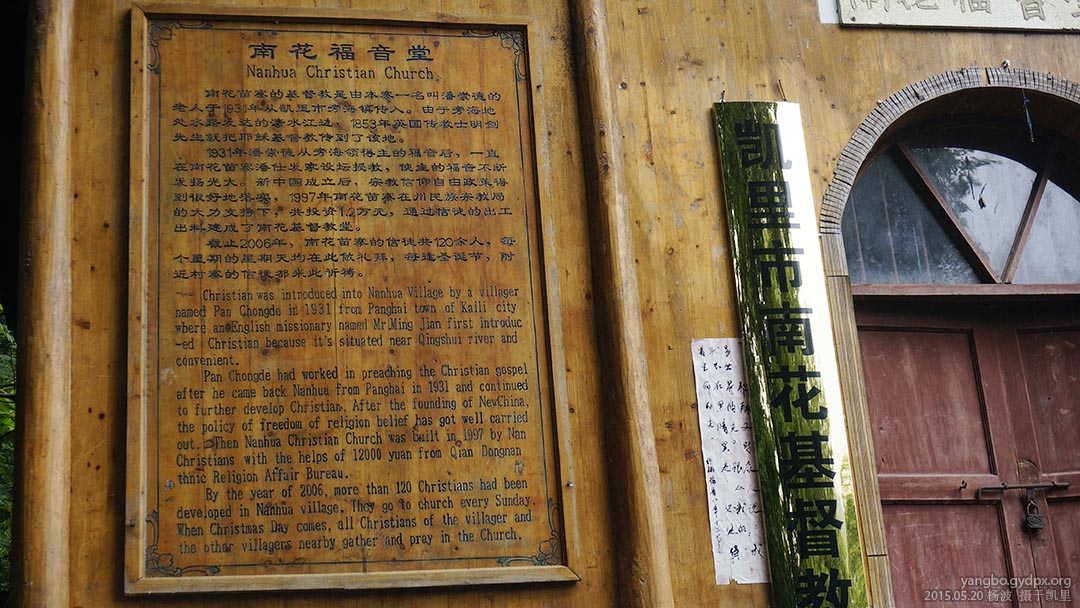 南花福音堂
Nanhua Christian Church
南花苗寨的基督教是由本寨一名叫潘崇德的
老人于1931年从凯里市旁海镇传入。由于旁海地
处水路发达的清水江边，1853年英国传教士明剑
先生就把耶稣基督教传到了该地。
1931年潘崇德从旁海领得主的福音后，一直
在南花苗寨潘仕发家设坛授教，使主的福音不断
发扬光大。新中国成立后，宗教信仰自由政策得
到很好地落实，1997年南花苗寨在州民族宗教局
的大力支持下，共投资1.2万元，通过信徒的出工
出料建成了南花基督教堂。
截止2006年，南花苗寨的信徒共120余人，每
个星期的星期天均在此做礼拜，每逢圣诞节，附
近村寨的信徒都来此祈祷。
Christian was introduced into Nanhua Village by a villager
named Pan Chongde in 1931 from Panghai town of Kaili city
where an English missionary named Mr.Ming Jian first introduc
-ed Christian because it's situated near Qingshui river and
convenient.
Pan Chongde had worked in preaching the Christian gospel
after he came back Nanhua from Panghai in 1931 and continued
to further develop Christian. After the founding of NewChina,
the policy of freedom of religion belief has got well carried
out. Then Nanhua Christian Church was built in 1997 by Nan
Christians with the helps of 12000 yuan from Qian Dongnan
thnic Religion Affair Bureau.
By the year of 2006, more than 120 Christians had been
developed in Nanhua village. They go to church every Sunday
When Christmas Day comes, all Christians of the villager and
the other villagers nearby gather and pray in the Church.
凯里市南花基督教
南花福音堂
yangbo.gydpx.org
2015.05.20 杨波 摄于凯里